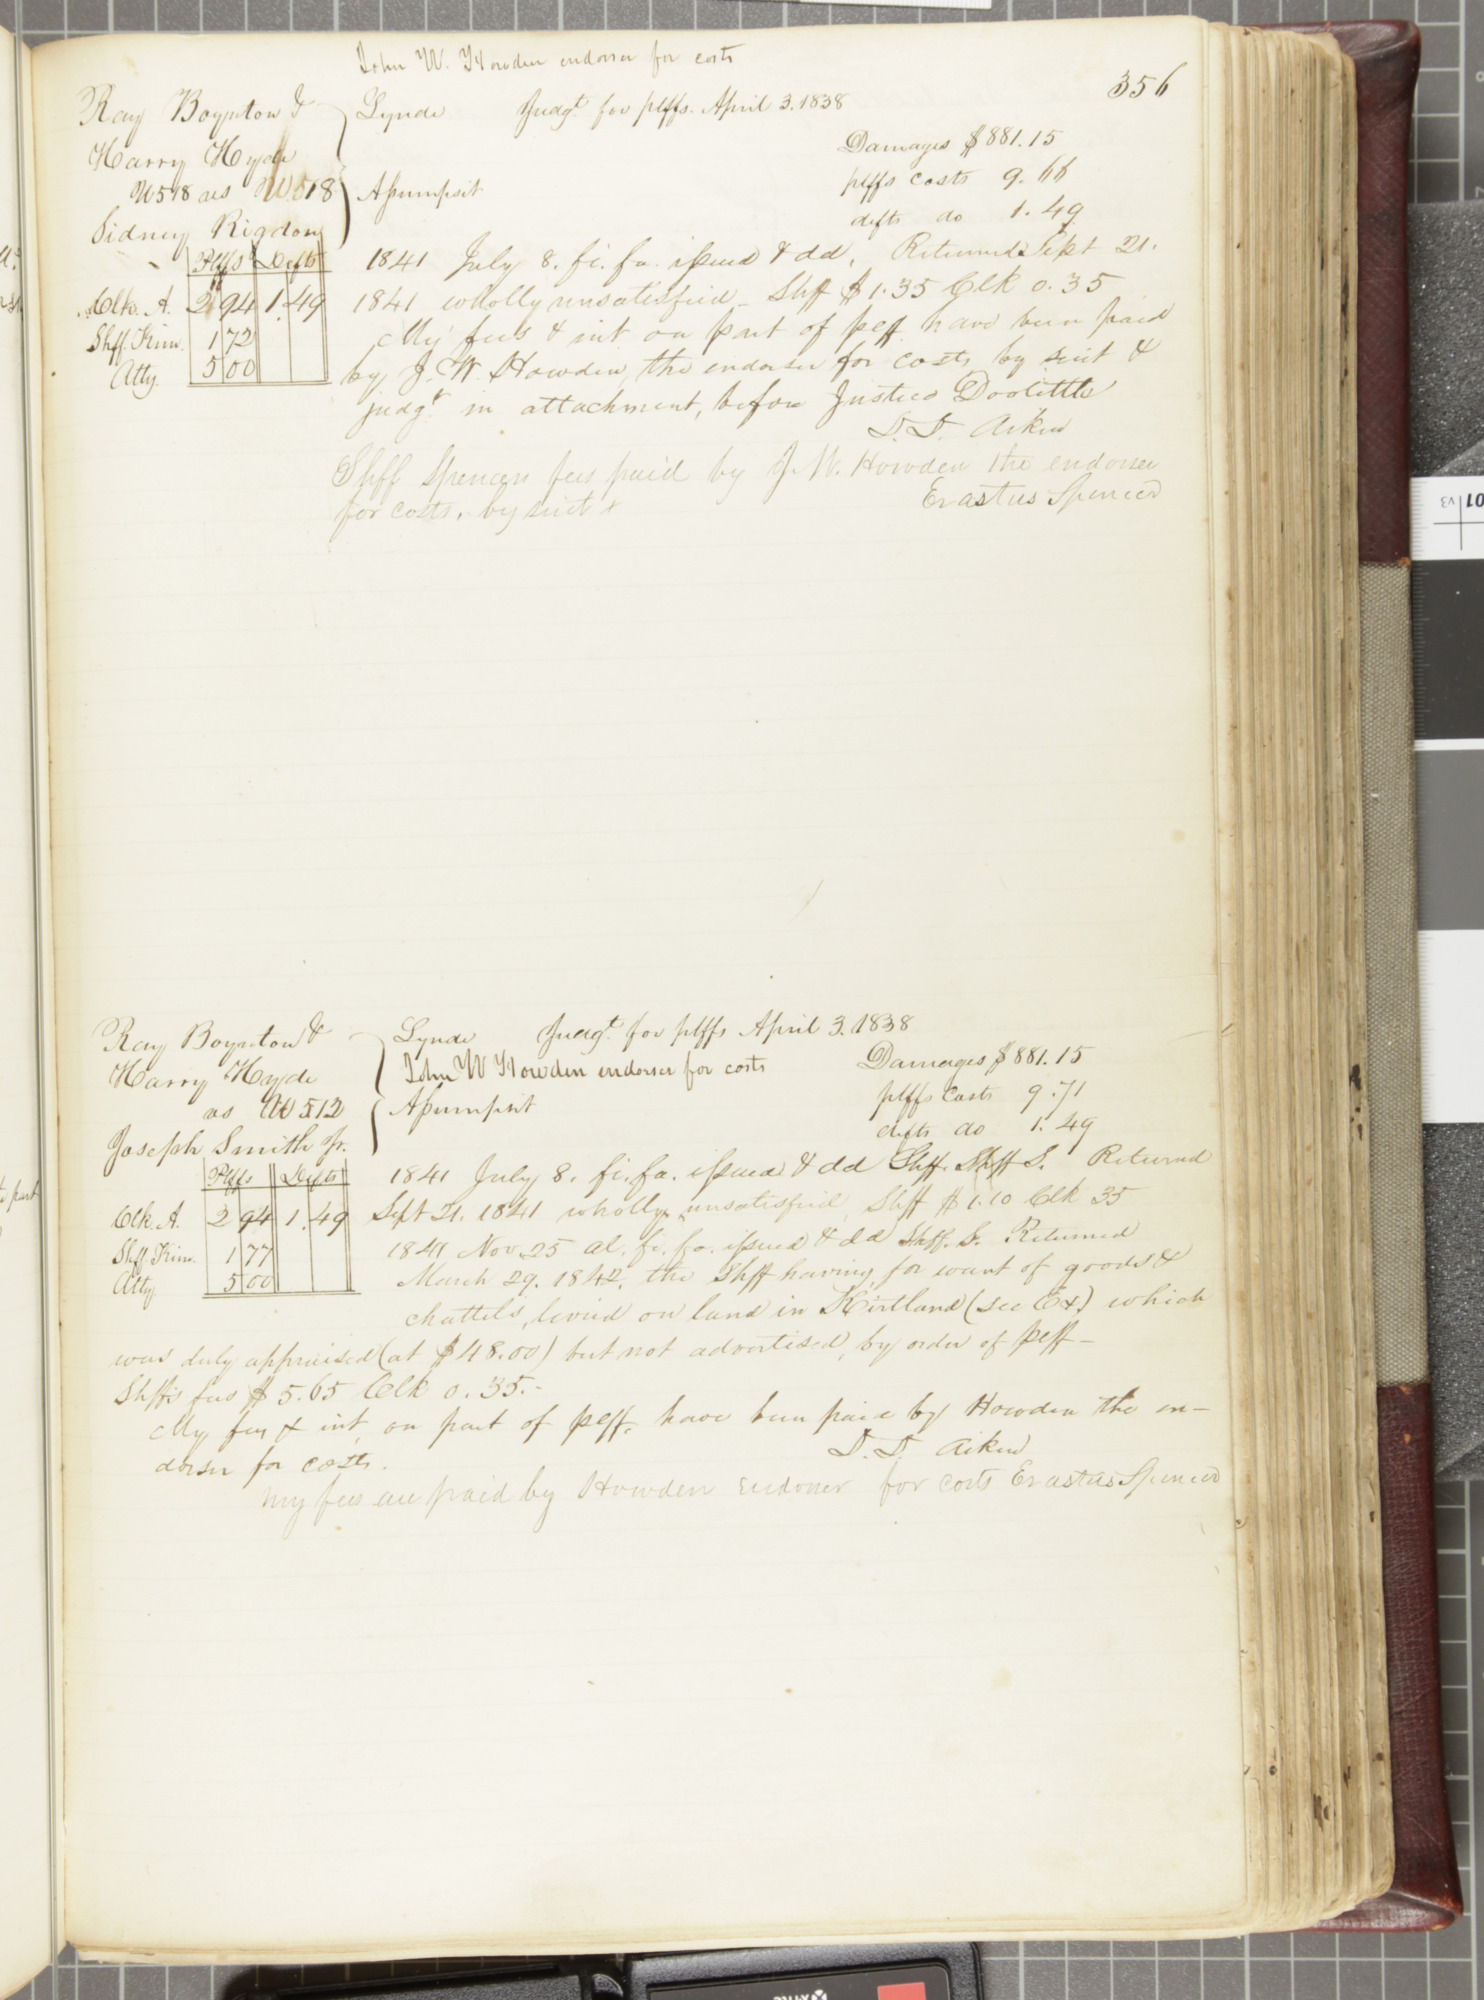 John W. Howden endorser for costs
356
Ray Boynton & Lynde Judgt. for plffs. April 3. 1838
Harry Hyde Damages $881.15
W518 vs W518 Assumpsit plffs costs 9.66
Sidney Rigdon defts do 1.49
Plffs Defts 1841 July 8. fi. fa. issued & dd. Returned Sept 21.
Clk. A. 2 94 1.49 1841 wholly unsatisfied - Shff $1.35 Clk 0.35
Shff. Kim. 1 72 My fees & int on part of plff have been paid
Atty. 5 00 by J. W. Howden, the endorser for costs, by suit &
judgt. in attachment, before Justice Doolittle
D. D. Aiken
Shff Spencers fees paid by J. W. Howden the endorser
for costs, by suit & Erastus Spencer
Ray Boynton & Lynde Judgt. for plffs April 3. 1838
Harry Hyde John W Howden endorser for costs Damages $881.15
vs W512 Assumpsit plffs Costs 9.71
Joseph Smith Jr. defts do 1.49
Plffs Defts 1841 July 8. fi. fa. issued & dd Shff. Shff S. Returned
Clk. A. 2 94 1.49 Sept 21. 1841 wholly unsatisfied, Shff $1.10 Clk 35
Shff. Kim. 1 77 1841 Nov. 25 al. fi. fa. issued & dd Shff. S. Returned
Atty 5 00 March 29. 1842, the Shff having, for want of goods &
chattels, levied on land in Kirtland (see Ex.) which
was duly appraised (at $48.00) but not advertised, by order of plff -
Shffs fees $5.65 Clk 0.35.-
My fees & int, on part of plff. have been paid by Howden the en-
dorser for costs. D. D. Aiken
my fees are paid by Howden Endorser for costs Erastus Spencer